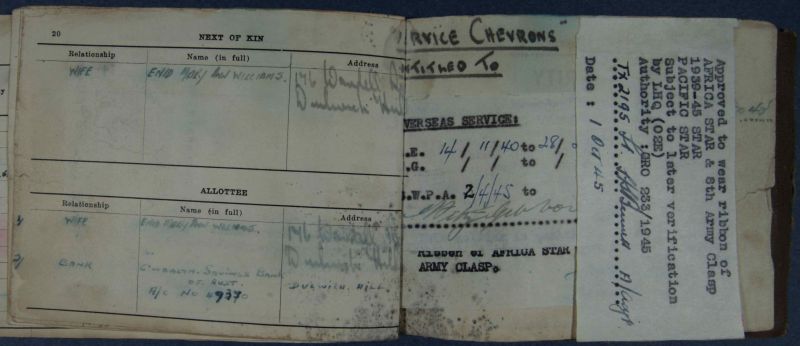 20
NEXT OF KIN
Relationship Name (in full) Address
WIFE ENID MARY WILLIAMS.
176
ALLOTTEE
Relationship Name (in full) Address
1/ WIFE ENID MARY WILLIAMS. 176
2/ BANK C'WEALTH. SAVINGS BANK DULWICH. HILL
OF. AUST.
A/C No 49370
RVICE CHEVRONS"
NTITLED TO
VERSEAS SERVICE:
.E. 14/ 11/40 to 28/
.G. / / to /
.W.P.A. 2/4/45 to
Ribbon of AFRICA STAR
ARMY CLASP.
Approved to wear ribbon of
AFRICA STAR & 8th Army Clasp
1939-45 STAR
PACIFIC STAR
Subject to later verification
by LHQ (O2E)
Authority :GRO 233/1945
TX2195 Lt.
Date : 1 Oct 45